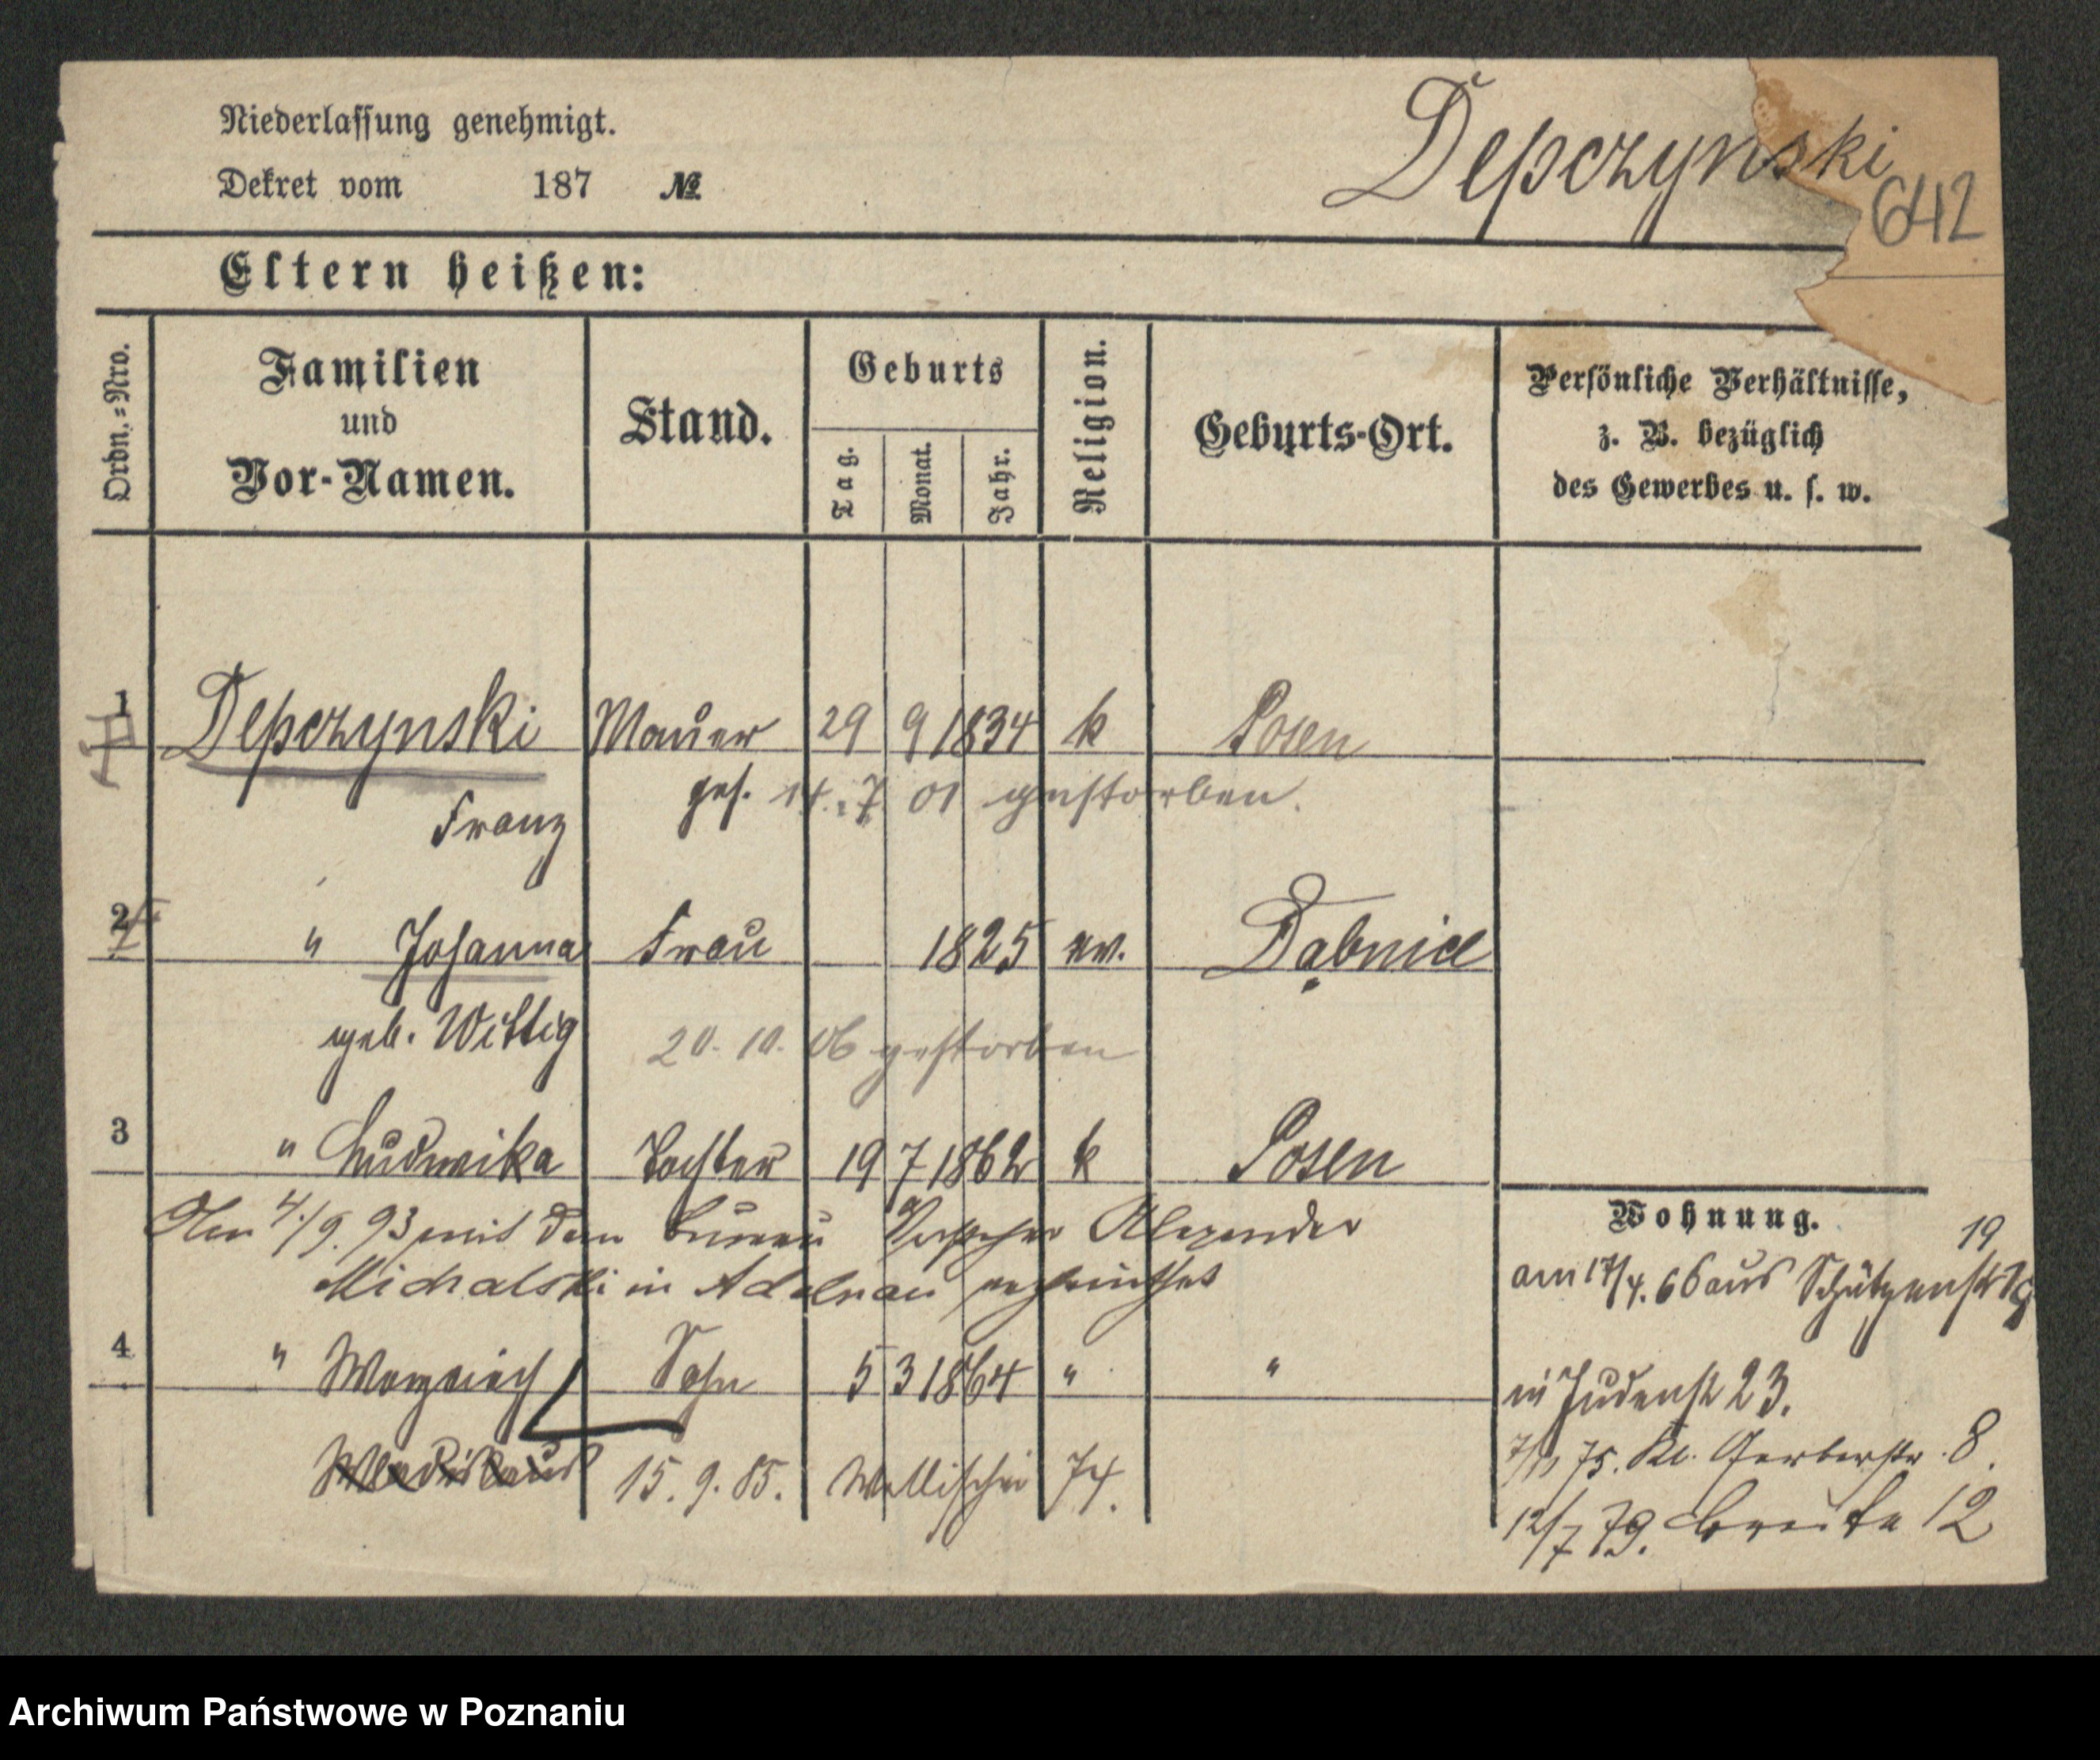 Niederlassung genehmigt.
Dekret vom 187 №
Depczynski
642
Eltern heißen:
Ordn.-Nro.
Familien
und
Vor-Namen.
Stand.
Geburts
Tag.
Monat.
Jahr.
Religion.
Geburts-Ort.
Persönliche Verhältnisse,
z. B. bezüglich
des Gewerbes u. s. w.
1 Depczynski Maurer 29 9 1834 k Posen
Franz
14. 7 01 gestorben.
2 " Johanna Frau 1825 ev. Dąbnice
geb. Wittig
20. 10. 06 gestorben
3 " Ludwika Tochter 19 7 1862 k Posen
4./9. 93 mit dem Alexander
Michalski in Adelnau
4 " Sohn 5 3 1864 " "
Wladislaus 15. 9. 85. Wallischei 74.
Wohnung.
19
am 17/4. 66 aus Schützenstr
in Judenstr 23.
7/11 75. Kl. Gerberstr. 8.
12/7 79. Breite 12
Archiwum Państwowe w Poznaniu